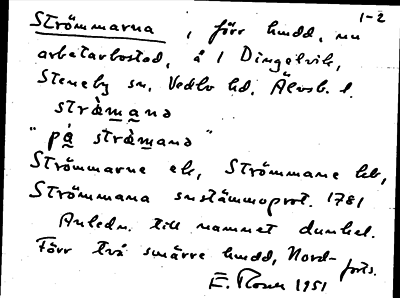 1-2
Strömmarna, förr hmdd, nu
arbetarbostad, å 1 Dingelvik,
Steneby sn. Vedbo hd, Älvsb. l.
strömana
"på strömana"
Strömmarne ek, Strömmane kbr,
Strömmana snstämmoprot. 1781
Anledn. till namnet dunkel.
Förr två smärre hmdd, Nord-
forts.
E. 1951